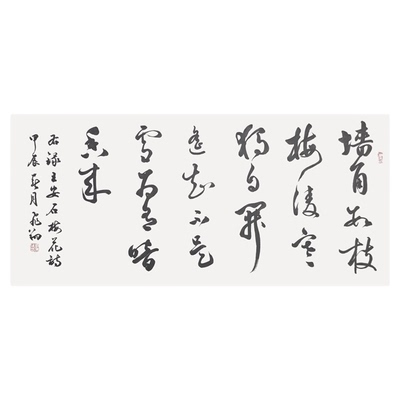 墙角数枝
梅凌寒
独自开
遥知不是
雪为有暗
香来
右录王安石梅花诗
甲辰夏月